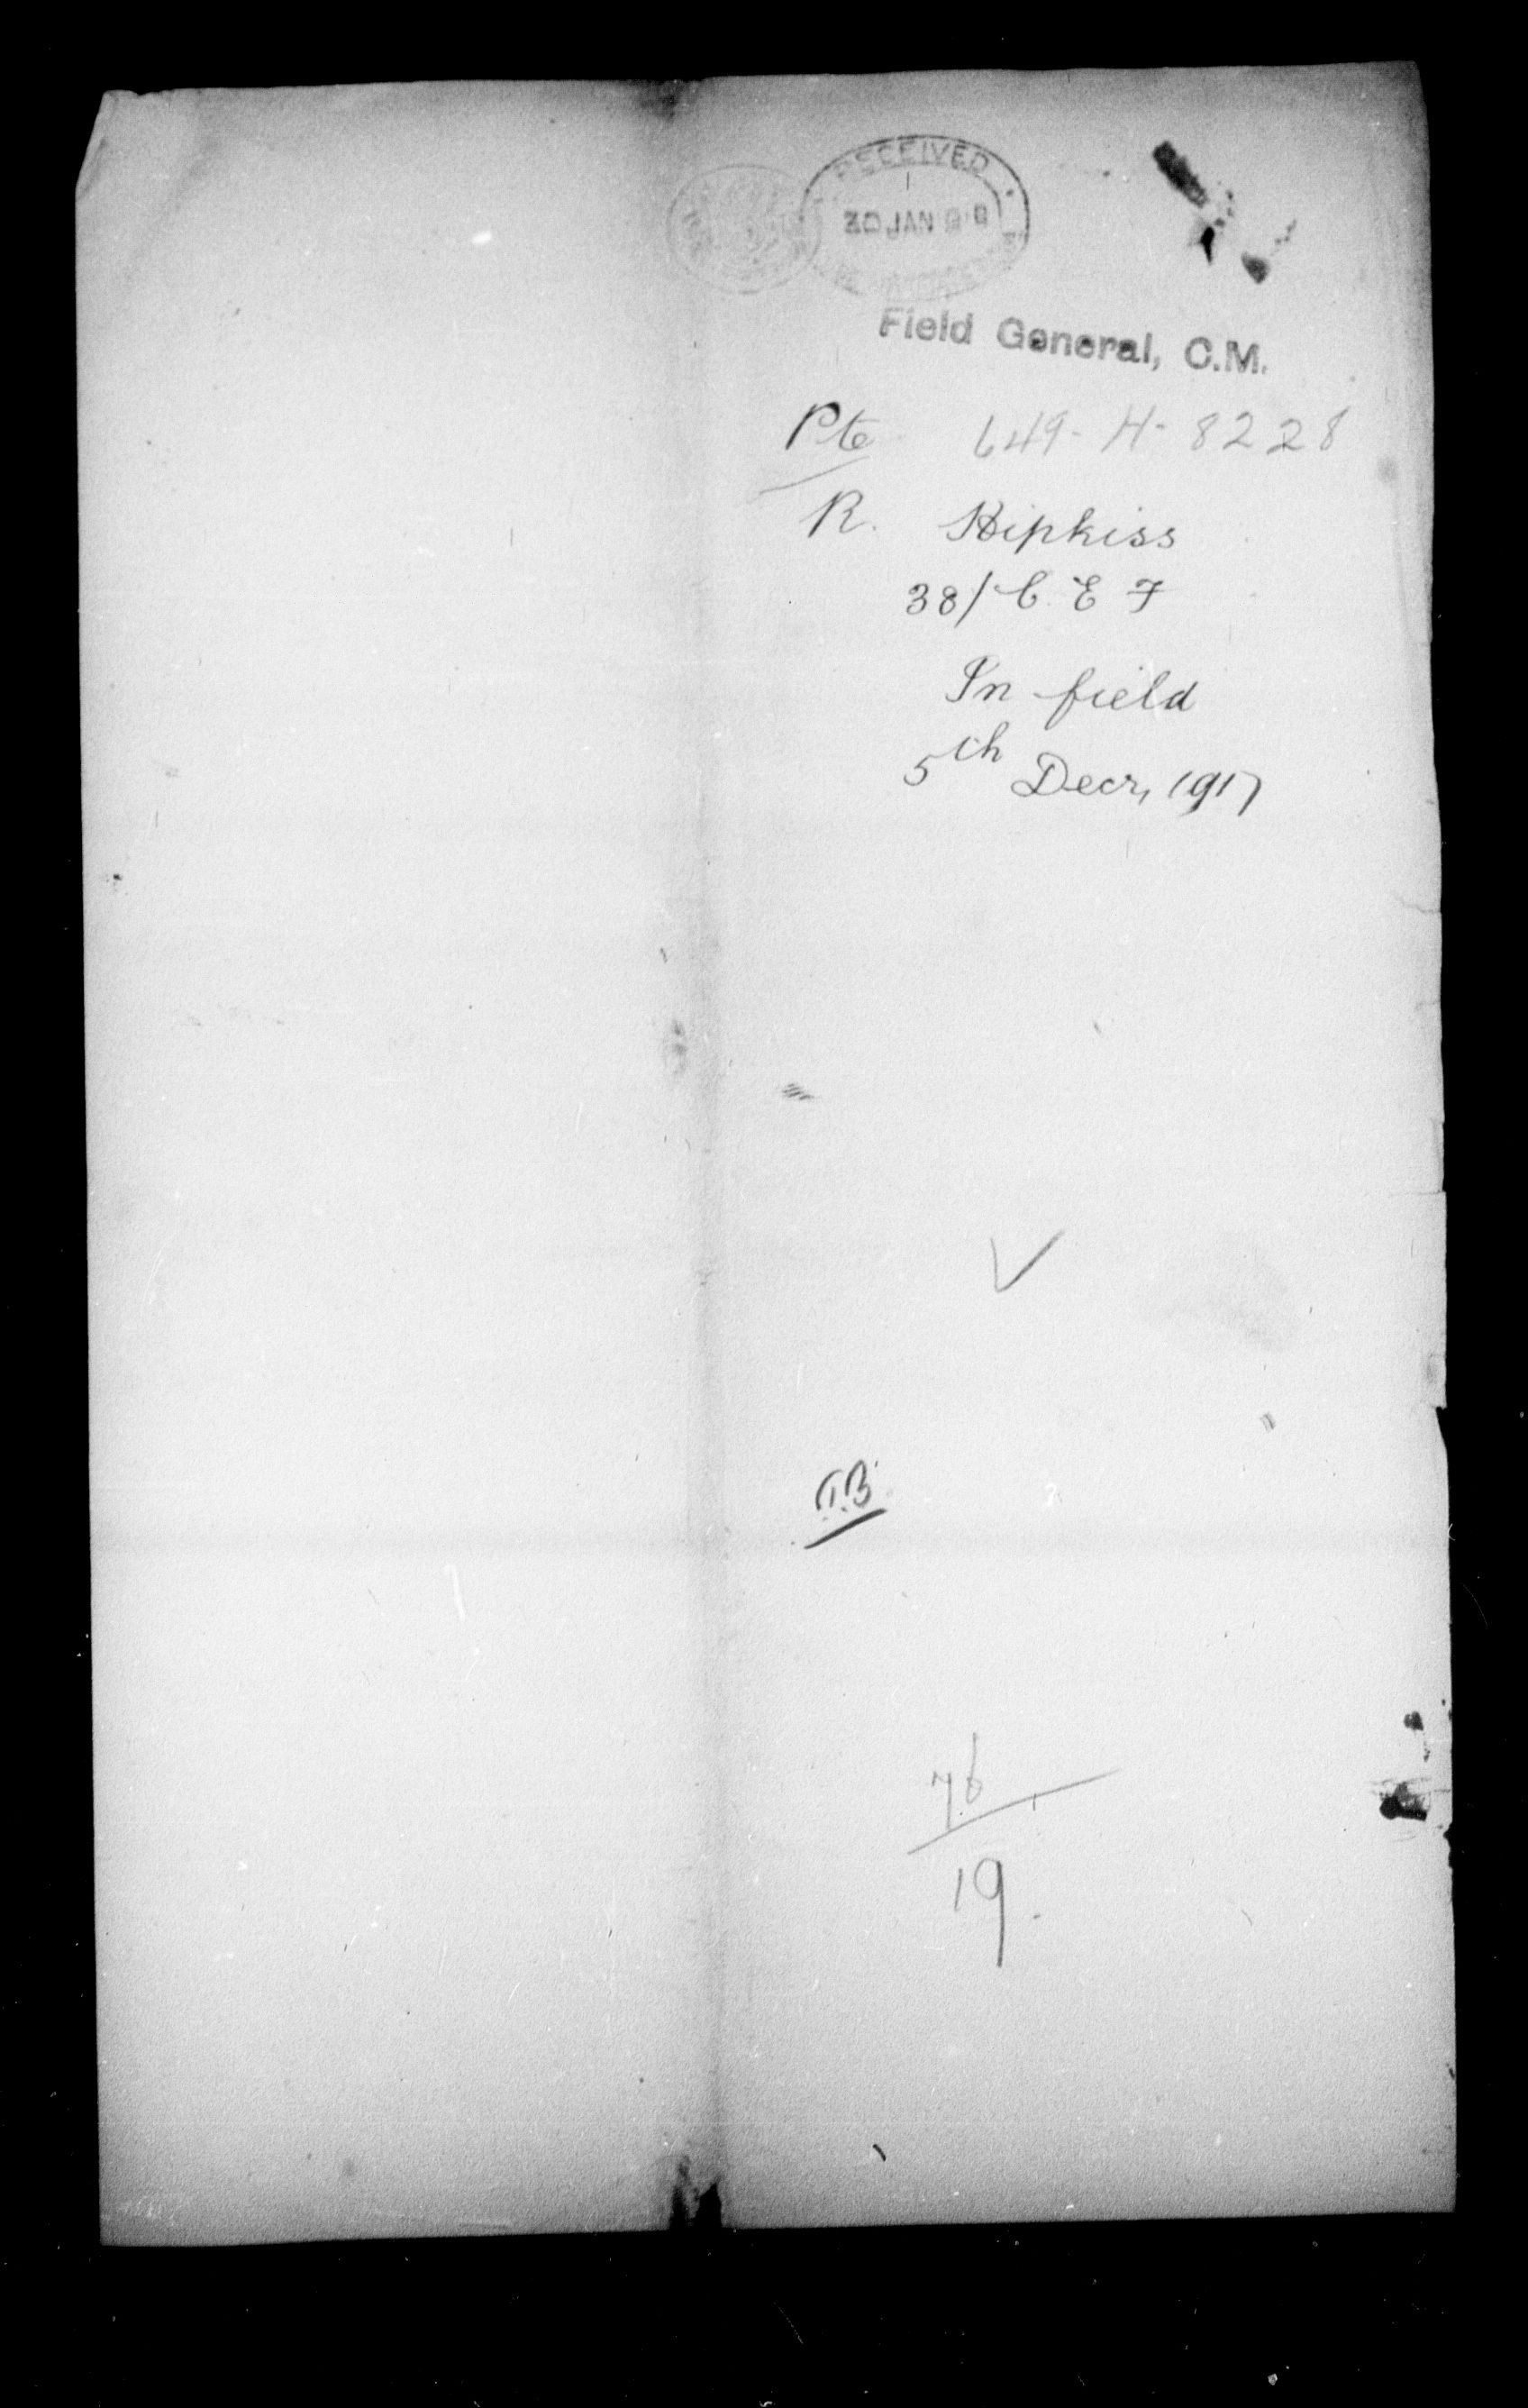 RECEIVED
30 JAN
Field General, C.M.
Pte 649-H-8228
R. Hipkiss
38/C E F
In field
5th Decr, 1917
76
19